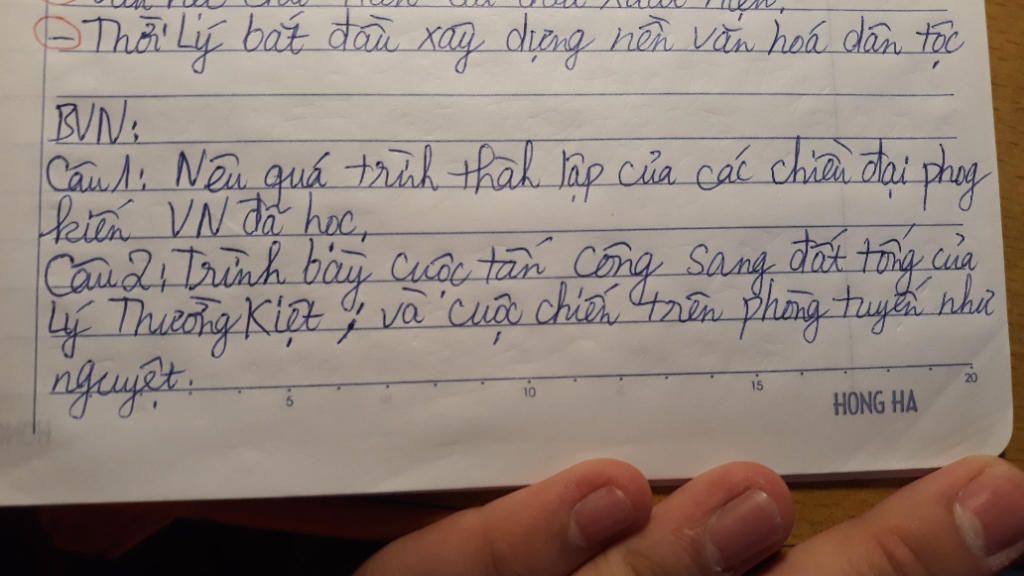 - Thời Lý bắt đầu xây dựng nền văn hoá dân tộc
BVN:
Câu 1: Nêu quá trình thàh lập của các chiều đại phog
kiến VN đã học,
Câu 2: Trình bày cuộc tấn công sang đất tống của
Lý Thường Kiệt; và cuộc chiến trên phòng tuyến như
nguyệt.
5 10 15 20
HONG HA